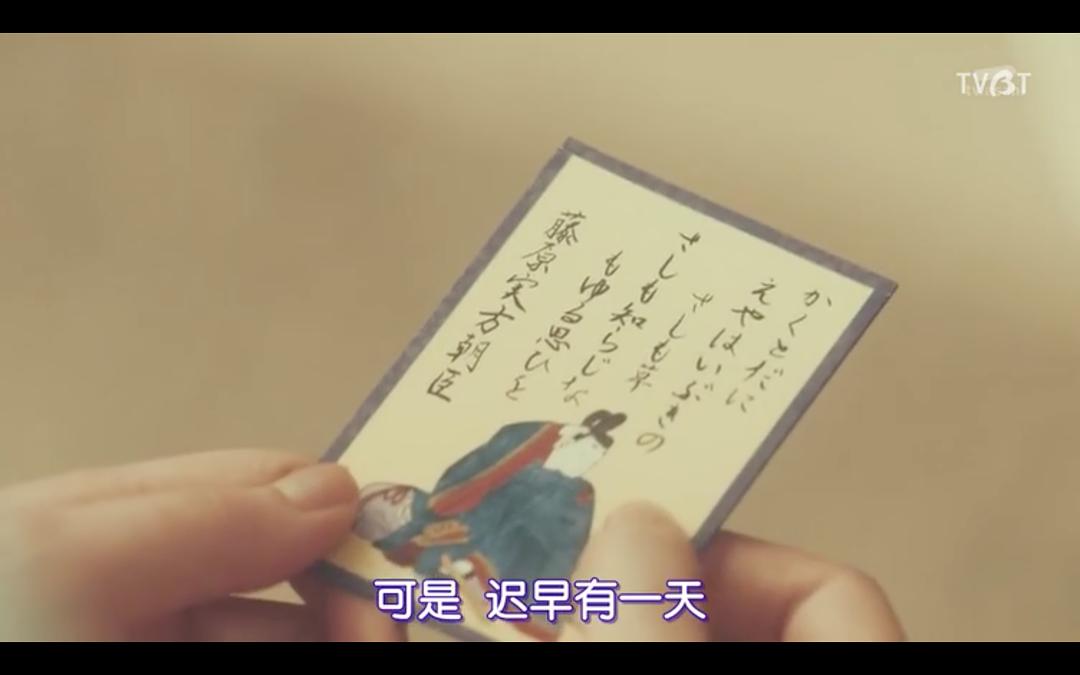 TVBT
かくとだに
えやはいぶきの
さしも草
さしも知らじな
もゆる思ひを
藤原実方朝臣
可是 迟早有一天